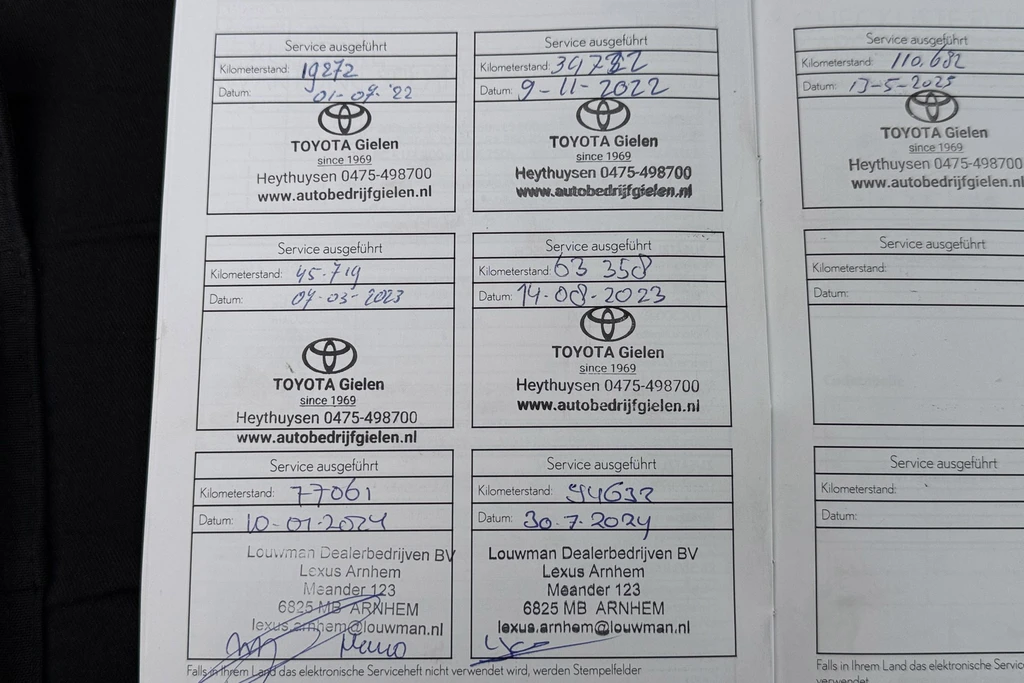 Service ausgeführt
Kilometerstand: 19272
Datum: 01-07-'22
TOYOTA Gielen
since 1969
Heythuysen 0475-498700
www.autobedrijfgielen.nl
Service ausgeführt
Kilometerstand:
Datum: 9-11-2022
TOYOTA Gielen
since 1969
Heythuysen 0475-498700
www.autobedrijfgielen.nl
Service ausgeführt
Kilometerstand: 45.719
Datum: 07-03-2023
TOYOTA Gielen
since 1969
Heythuysen 0475-498700
www.autobedrijfgielen.nl
Service ausgeführt
Kilometerstand: 63 358
Datum: 14-08-2023
TOYOTA Gielen
since 1969
Heythuysen 0475-498700
www.autobedrijfgielen.nl
Service ausgeführt
Kilometerstand: 77061
Datum: 10-01-2024
Louwman Dealerbedrijven BV
Lexus Arnhem
Meander 123
6825 MB ARNHEM
lexus.arnhem@louwman.nl
Service ausgeführt
Kilometerstand: 94632
Datum: 30-7-2024
Louwman Dealerbedrijven BV
Lexus Arnhem
Meander 123
6825 MB ARNHEM
lexus.arnhem@louwman.nl
Falls in Ihrem Land das elektronische Serviceheft nicht verwendet wird, werden Stempelfelder
Service ausgeführt
Kilometerstand: 110.682
Datum: 13-5-2025
TOYOTA Gielen
since 1969
Heythuysen 0475-498700
www.autobedrijfgielen.nl
Service ausgeführt
Kilometerstand:
Datum:
Service ausgeführt
Kilometerstand:
Datum:
Falls in Ihrem Land das elektronische Service
verwendet